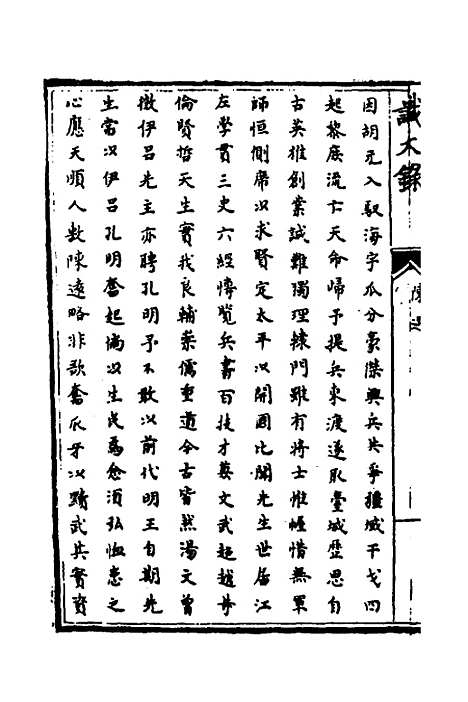 識大錄
因胡元入馭海宇瓜分豪傑興兵共爭疆域干戈四
起黎庶流亡天命歸予提兵東渡遂取臺城歷思自
古英雄創業誠難獨理轅門雖有將士帷幄惜無軍
師恒側席以求賢定太平以開國比聞先生世居江
左學貫三史六經博覽兵書百技才兼文武超越等
倫賢哲天生實我良輔業儒重道今古皆然湯文曾
徵伊呂先主亦聘孔明予不敢以前代明王自期先
生當以伊呂孔明奮起倘以生民為念須弘恤患之
心應天順人敷陳遠略非欲奮爪牙以黷武共實資